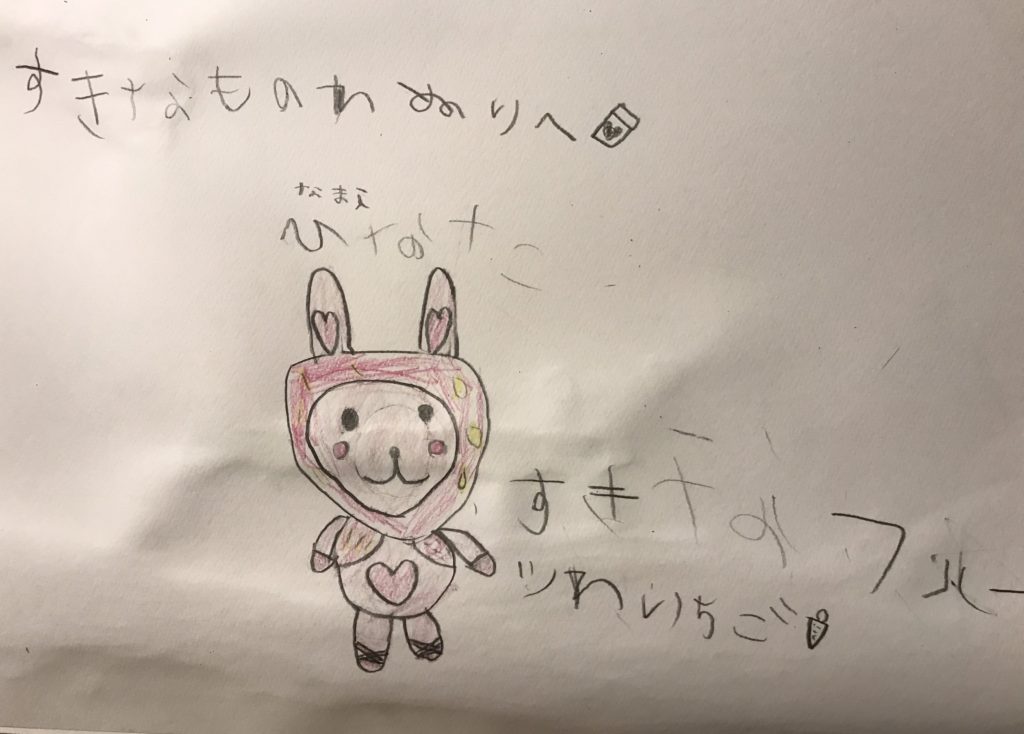 すきなものわぬりへ
なまえ
ひなた
すきなフルー
ツわいちご